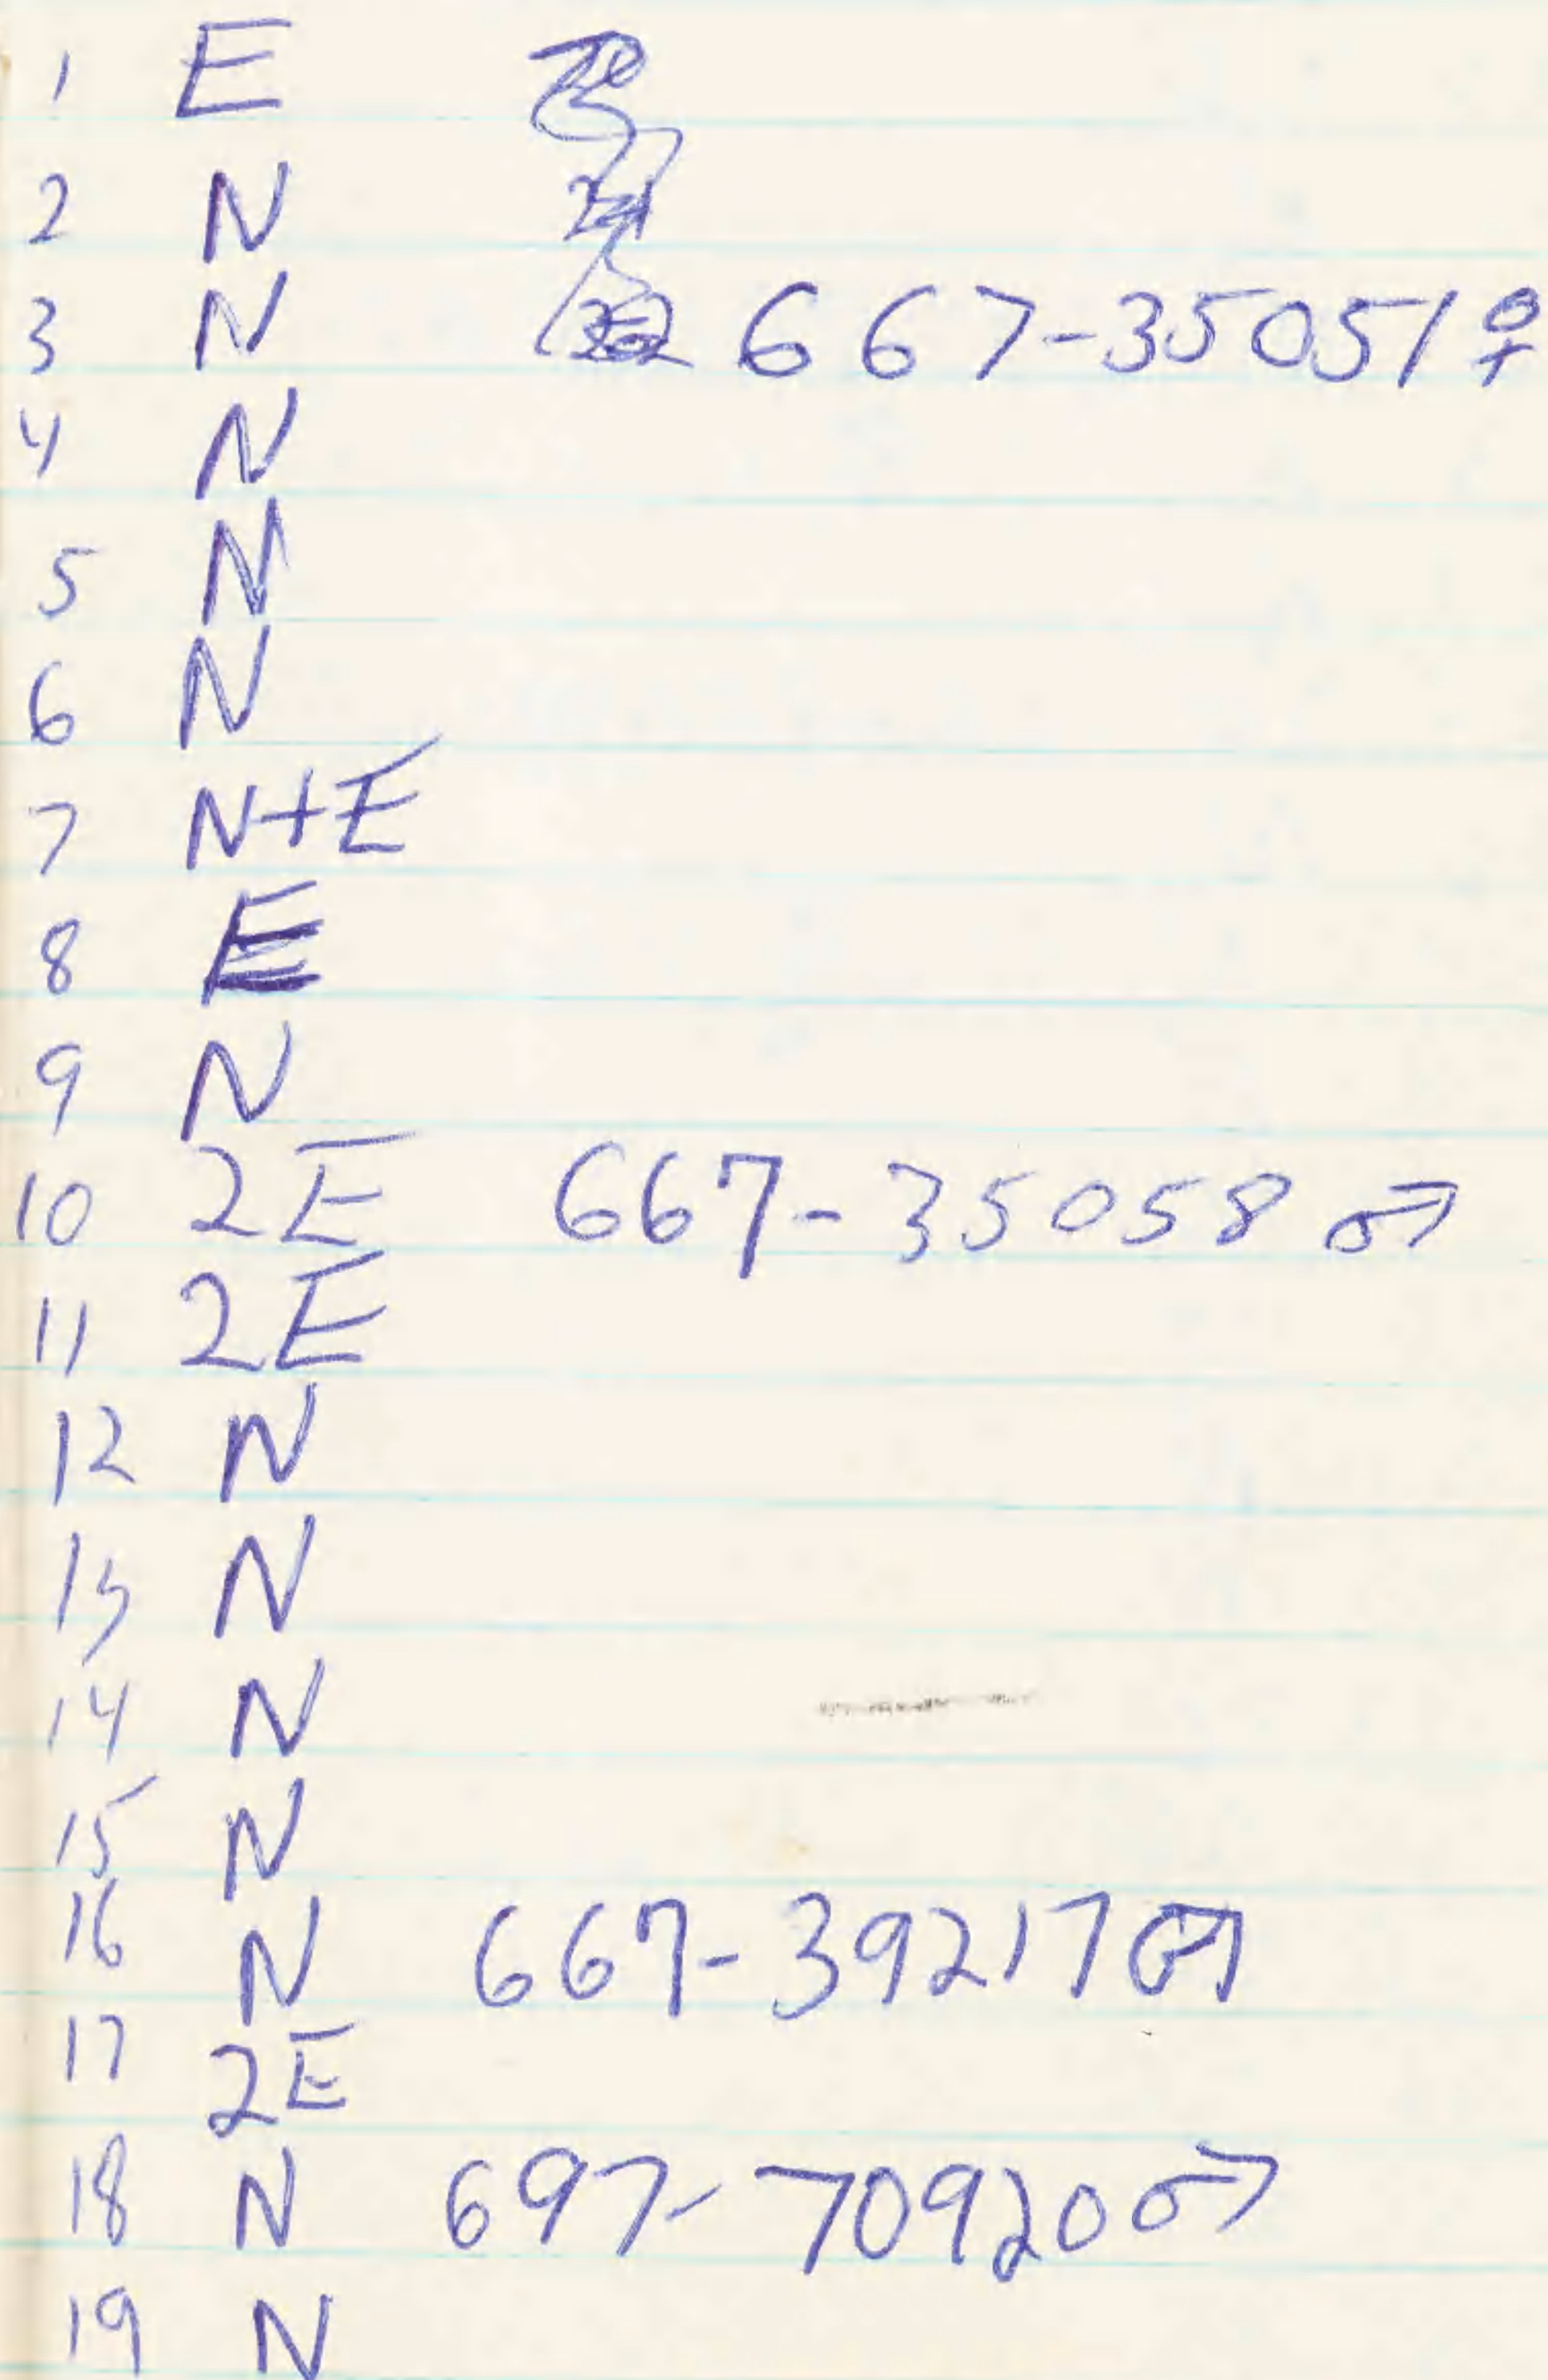 1 E
2 N
3 N 667-35051 ♀
4 N
5 N
6 N
7 N+E
8 E
9 N
10 2E 667-35058 ♂
11 2E
12 N
13 N
14 N
15 N
16 N 667-39217 ♂
17 2E
18 N 697-70920 ♂
19 N